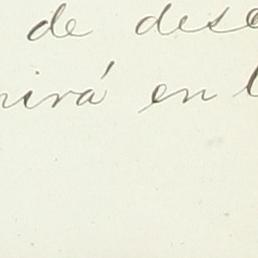 de dese
nirá en l